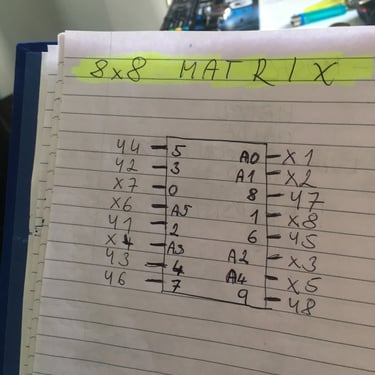 8x8 MATRIX
Y4 5 A0 X1
Y2 3 A1 X2
X7 0 8 Y7
X6 A5 1 X8
Y1 2 6 Y5
X4 A3 A2 X3
Y3 4 A4 X5
Y6 7 9 Y8